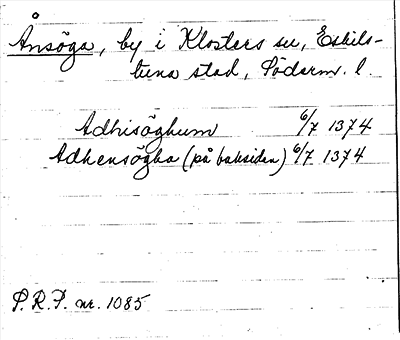 Ånsöga, by i Klosters sn, Eskils-
tuna stad, Söderm. l.
Adhisöghum 6/7 1374
Adhensögha (på baksidan) 6/7 1374
P.R.F. nr. 1085